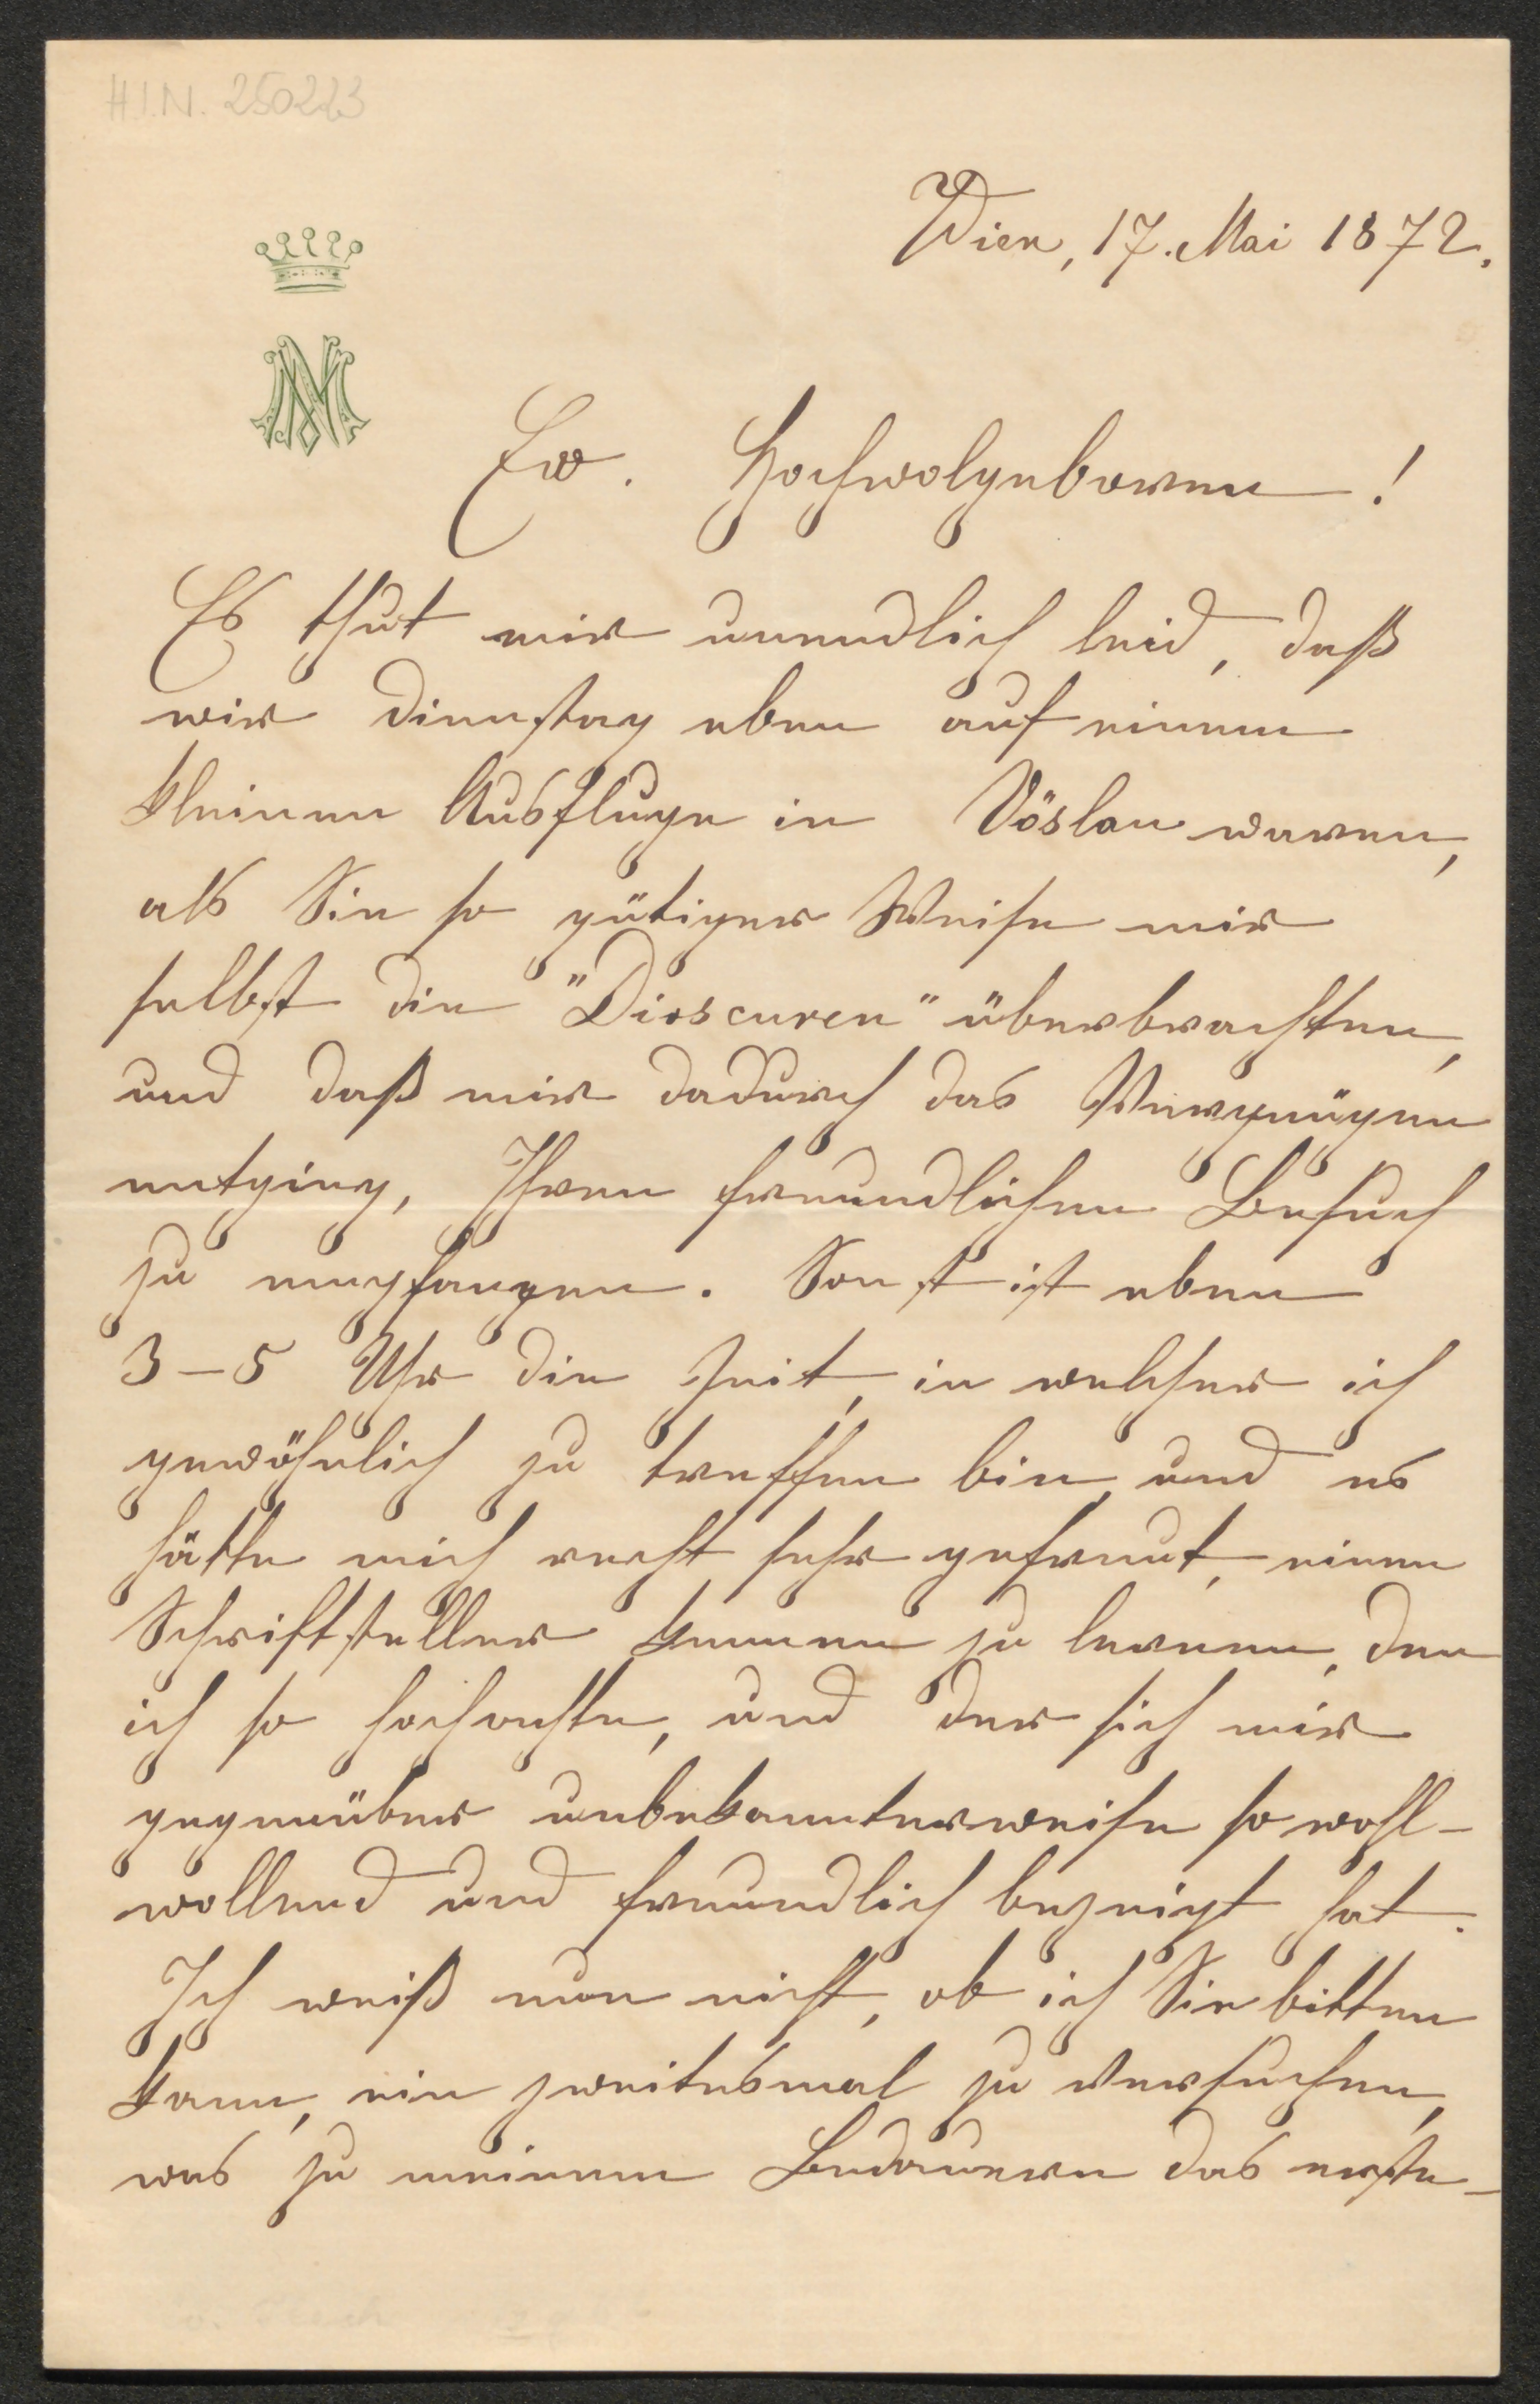 H.I.N. 250223
Wien, 17. Mai 1872.
Ew. Hochwolgeboren!
Es thut mir unendlich leid, daß
wir Dienstag eben auf einem
kleinen Ausfluge in Vöslau waren,
als Sie so gütiger Weise mir
selbst die "Dioscuren" überbrachten,
und daß mir dadurch das Vergnügen
entging, Ihren freundlichen Besuch
zu empfangen. Sonst ist eben
3–5 Uhr die Zeit, in welcher ich
gewöhnlich zu treffen bin, und es
hätte mich recht sehr gefreut, einen
Schriftsteller kennen zu lernen, den
ich so hochachte, und der sich mir
gegenüber unbekannterweise so wohl-
wollend und freundlich bezeigt hat.
Ich weiß nun nicht, ob ich Sie bitten
kann, ein zweitesmal zu versuchen,
was zu meinem Bedauern das erste-